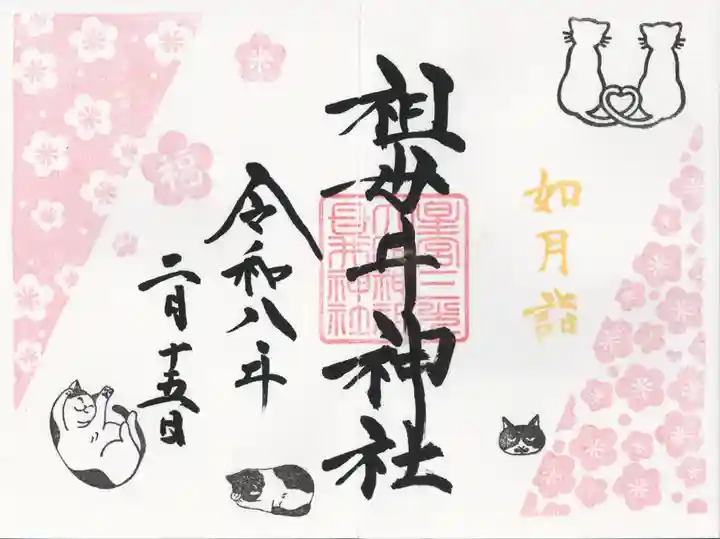 如月詣
祖母井神社
令和八年
二月十五日
福